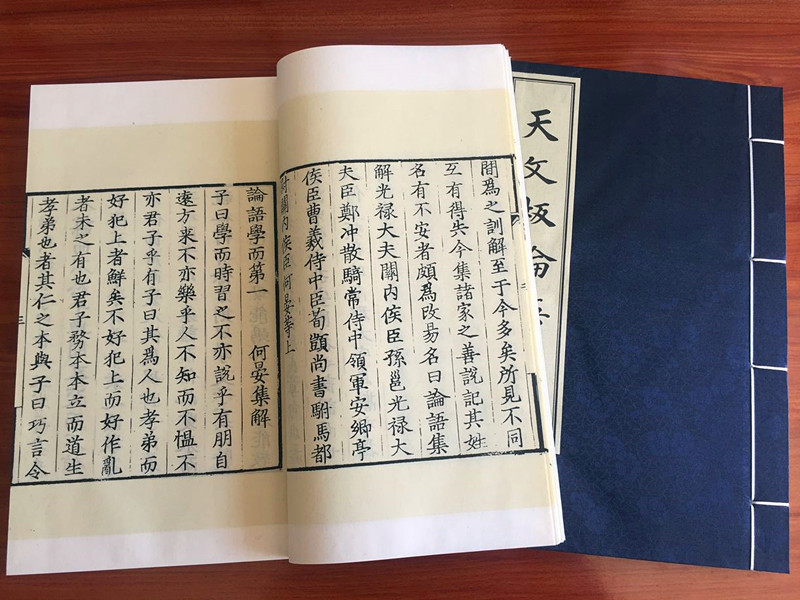 天文板論
間爲之訓解至于今多矣所見不同
互有得失今集諸家之善說記其姓
名有不安者頗爲改易名曰論語集
解光禄大夫關内侯臣孫邕光禄大
夫臣鄭冲散騎常侍中領軍安鄉亭
侯臣曹羲侍中臣荀顗尚書駙馬都
尉關内侯臣何晏等上
論語學而第一 何晏集解
子曰學而時習之不亦說乎有朋自
遠方来不亦樂乎人不知而不愠不
亦君子乎有子曰其爲人也孝弟而
好犯上者鮮矣不好犯上而好作亂
者未之有也君子務本本立而道生
孝弟也者其仁之本與子曰巧言令
三